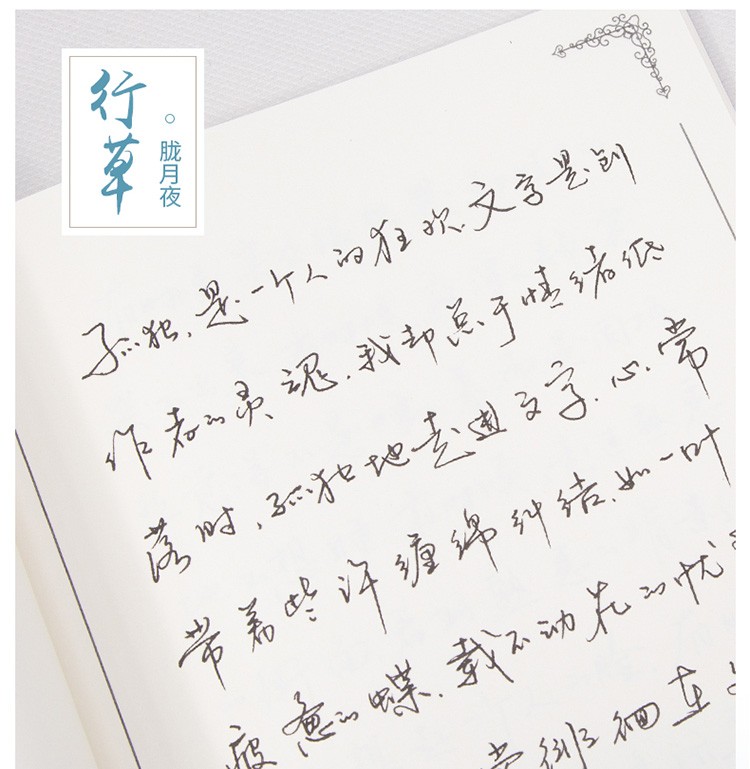 行草
。胧月夜
孤独,是一个人的狂欢,文字是创
作者的灵魂,我却总于情绪低
落时,孤独地走进文字,心,常
常着些许缠绵纠结,如一叶
疲惫的蝶,载不动花的忧
常徘徊在